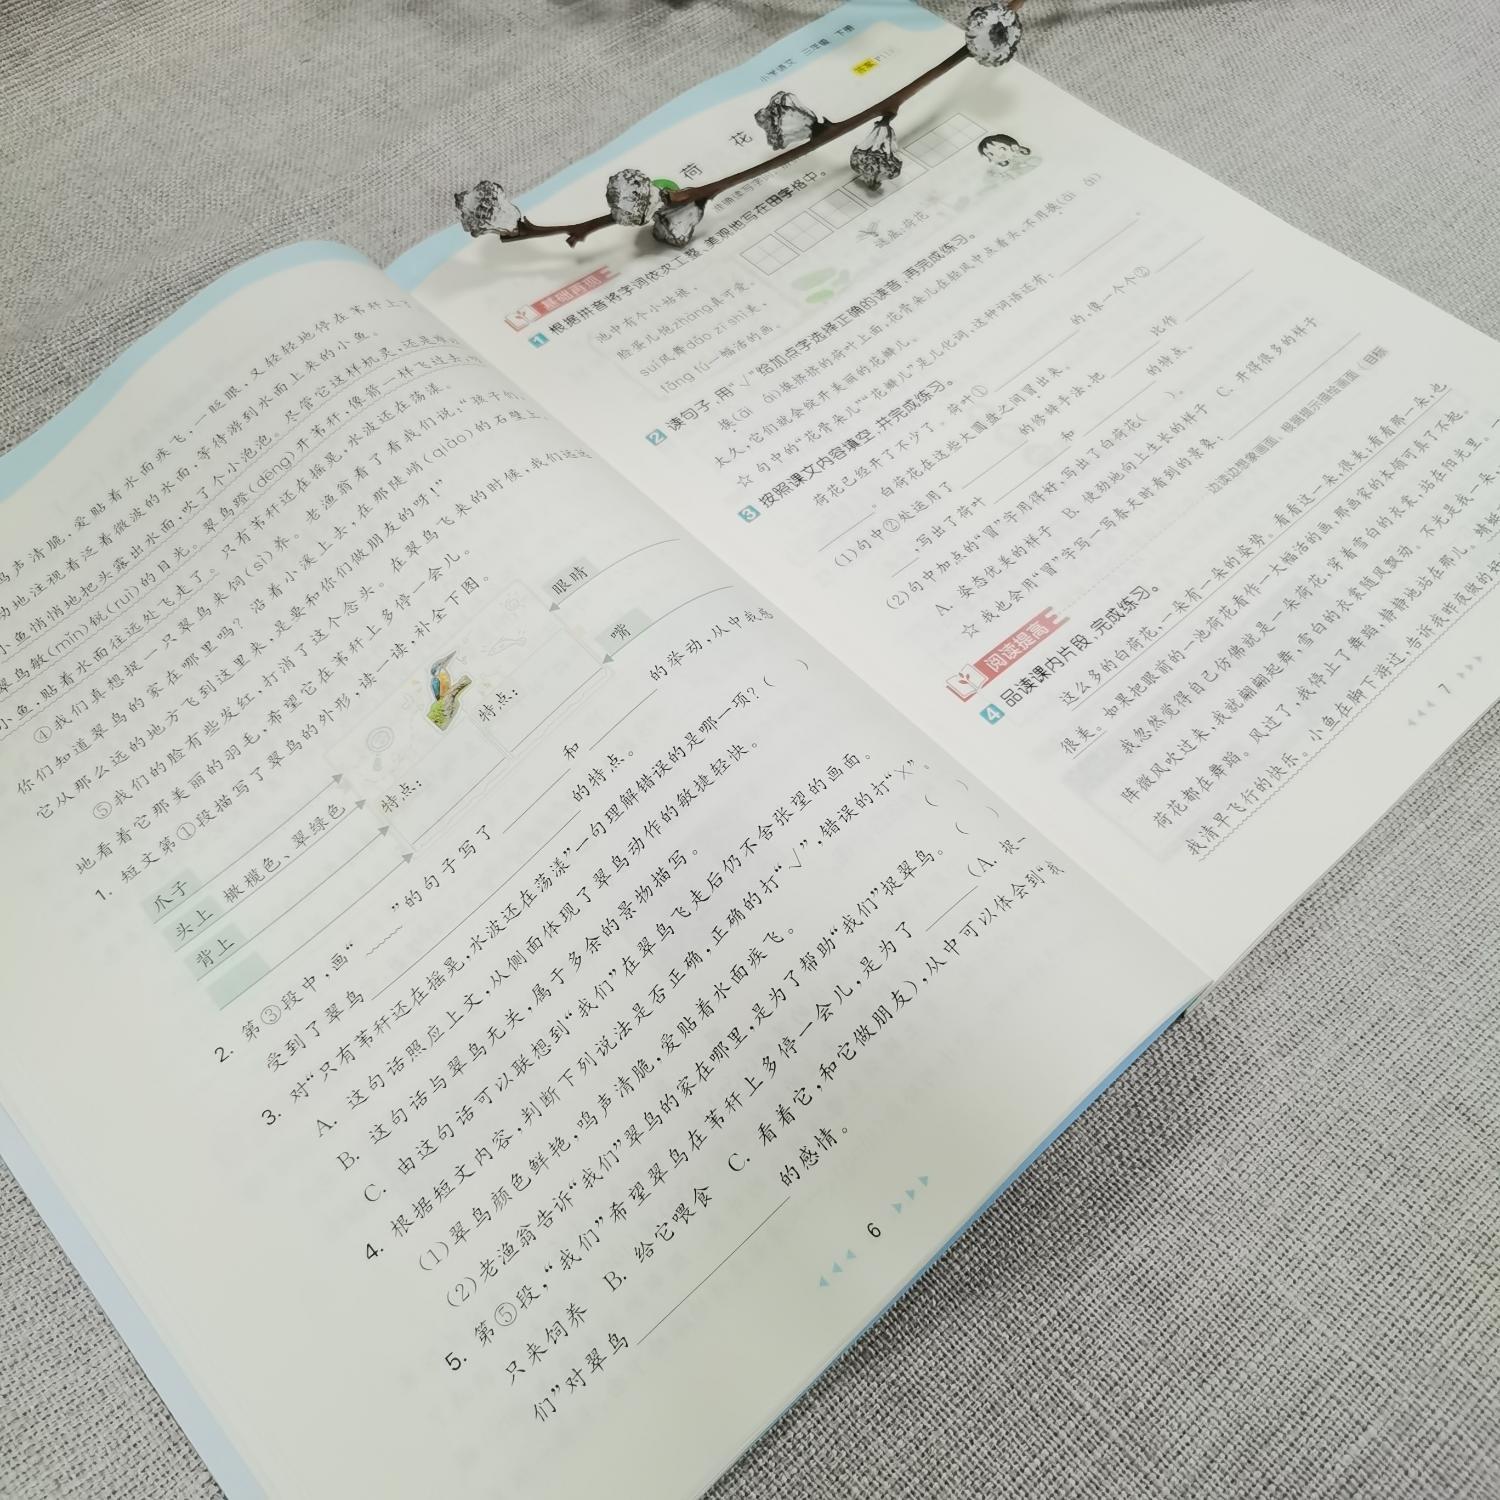 爱贴着水面疾飞,一眨眼,又轻轻地停在苇秆上
鸣声清脆,
动地注视着泛着微波的水面,等待游到水面上来的小鱼。
小鱼悄悄地把头露出水面,吹了个小泡泡。尽管它这样机灵,还是
翠鸟敏(mǐn)锐(ruì)的目光。翠鸟蹬(dēng)开苇秆,像箭一样飞过去,
小鱼,贴着水面往远处飞走了。只有苇秆还在摇晃,水波还在荡漾。
④我们真想捉一只翠鸟来饲(sì)养。老渔翁看了看我们说:“孩子们,
你们知道翠鸟的家在哪里吗?沿着小溪上去,在那陡峭(qiào)的石壁上。
它从那么远的地方飞到这里来,是要和你们做朋友的呀!”
⑤我们的脸有些发红,打消了这个念头。在翠鸟飞来的时候,我们远远
地看着它那美丽的羽毛,希望它在苇秆上多停一会儿。
1. 短文第①段描写了翠鸟的外形,读一读,补全下图。
爪子
头上 橄榄色、翠绿色
背上
特点:
特点:
眼睛
嘴
2. 第③段中,画“﹏﹏”的句子写了 和 的举动,从中我感
受到了翠鸟 的特点。
3. 对“只有苇秆还在摇晃,水波还在荡漾”一句理解错误的是哪一项?( )
A. 这句话照应上文,从侧面体现了翠鸟动作的敏捷轻快。
B. 这句话与翠鸟无关,属于多余的景物描写。
C. 由这句话可以联想到“我们”在翠鸟飞走后仍不舍张望的画面。
4. 根据短文内容,判断下列说法是否正确,正确的打“√”,错误的打“×”。
(1)翠鸟颜色鲜艳,鸣声清脆,爱贴着水面疾飞。 ( )
(2)老渔翁告诉“我们”翠鸟的家在哪里,是为了帮助“我们”捉翠鸟。 ( )
5. 第⑤段,“我们”希望翠鸟在苇秆上多停一会儿,是为了 (A. 捉一
只来饲养 B. 给它喂食 C. 看着它,和它做朋友),从中可以体会到“我
们”对翠鸟 的感情。
6
小学语文 三年级 下册
答案
荷 花
基础再现
1 根据拼音将字词依次工整、美观地写在田字格中。
池中有个小姑娘,
脸蛋儿饱zhàng真可爱。
suí风舞dǎo zī shì美,
fǎng fú一幅活的画。
谜底:荷花
2 读句子,用“√”给加点字选择正确的读音,再完成练习。
挨(āi ái)挨挤挤的荷叶上面,花骨朵儿在轻风中点着头,不用挨(āi ái)
太久,它们就会绽开美丽的花瓣儿。
☆ 句中的“花骨朵儿”“花瓣儿”是儿化词,这种词语还有: 、 。
3 按照课文内容填空,并完成练习。
荷花已经开了不少了。荷叶① 的,像一个个②
。白荷花在这些大圆盘之间冒出来。
(1)句中②处运用了 的修辞手法,把 比作
,写出了荷叶 和 的特点。
(2)句中加点的“冒”字用得好,写出了白荷花( )。
A. 姿态优美的样子 B. 使劲地向上生长的样子 C. 开得很多的样子
☆ 我也会用“冒”字写一写春天时看到的景象:
边读边想象画面,根据提示描绘画面(目标
阅读提高
4 品读课内片段,完成练习。
这么多的白荷花,一朵有一朵的姿势。看看这一朵,很美;看看那一朵,也
很美。如果把眼前的一池荷花看作一大幅活的画,那画家的本领可真了不起。
我忽然觉得自己仿佛就是一朵荷花,穿着雪白的衣裳,站在阳光里。一
阵微风吹过来,我就翩翩起舞,雪白的衣裳随风飘动。不光是我一朵,
荷花都在舞蹈。风过了,我停止了舞蹈,静静地站在那儿。蜻蜓
我清早飞行的快乐。小鱼在脚下游过,告诉我昨夜做的好
7